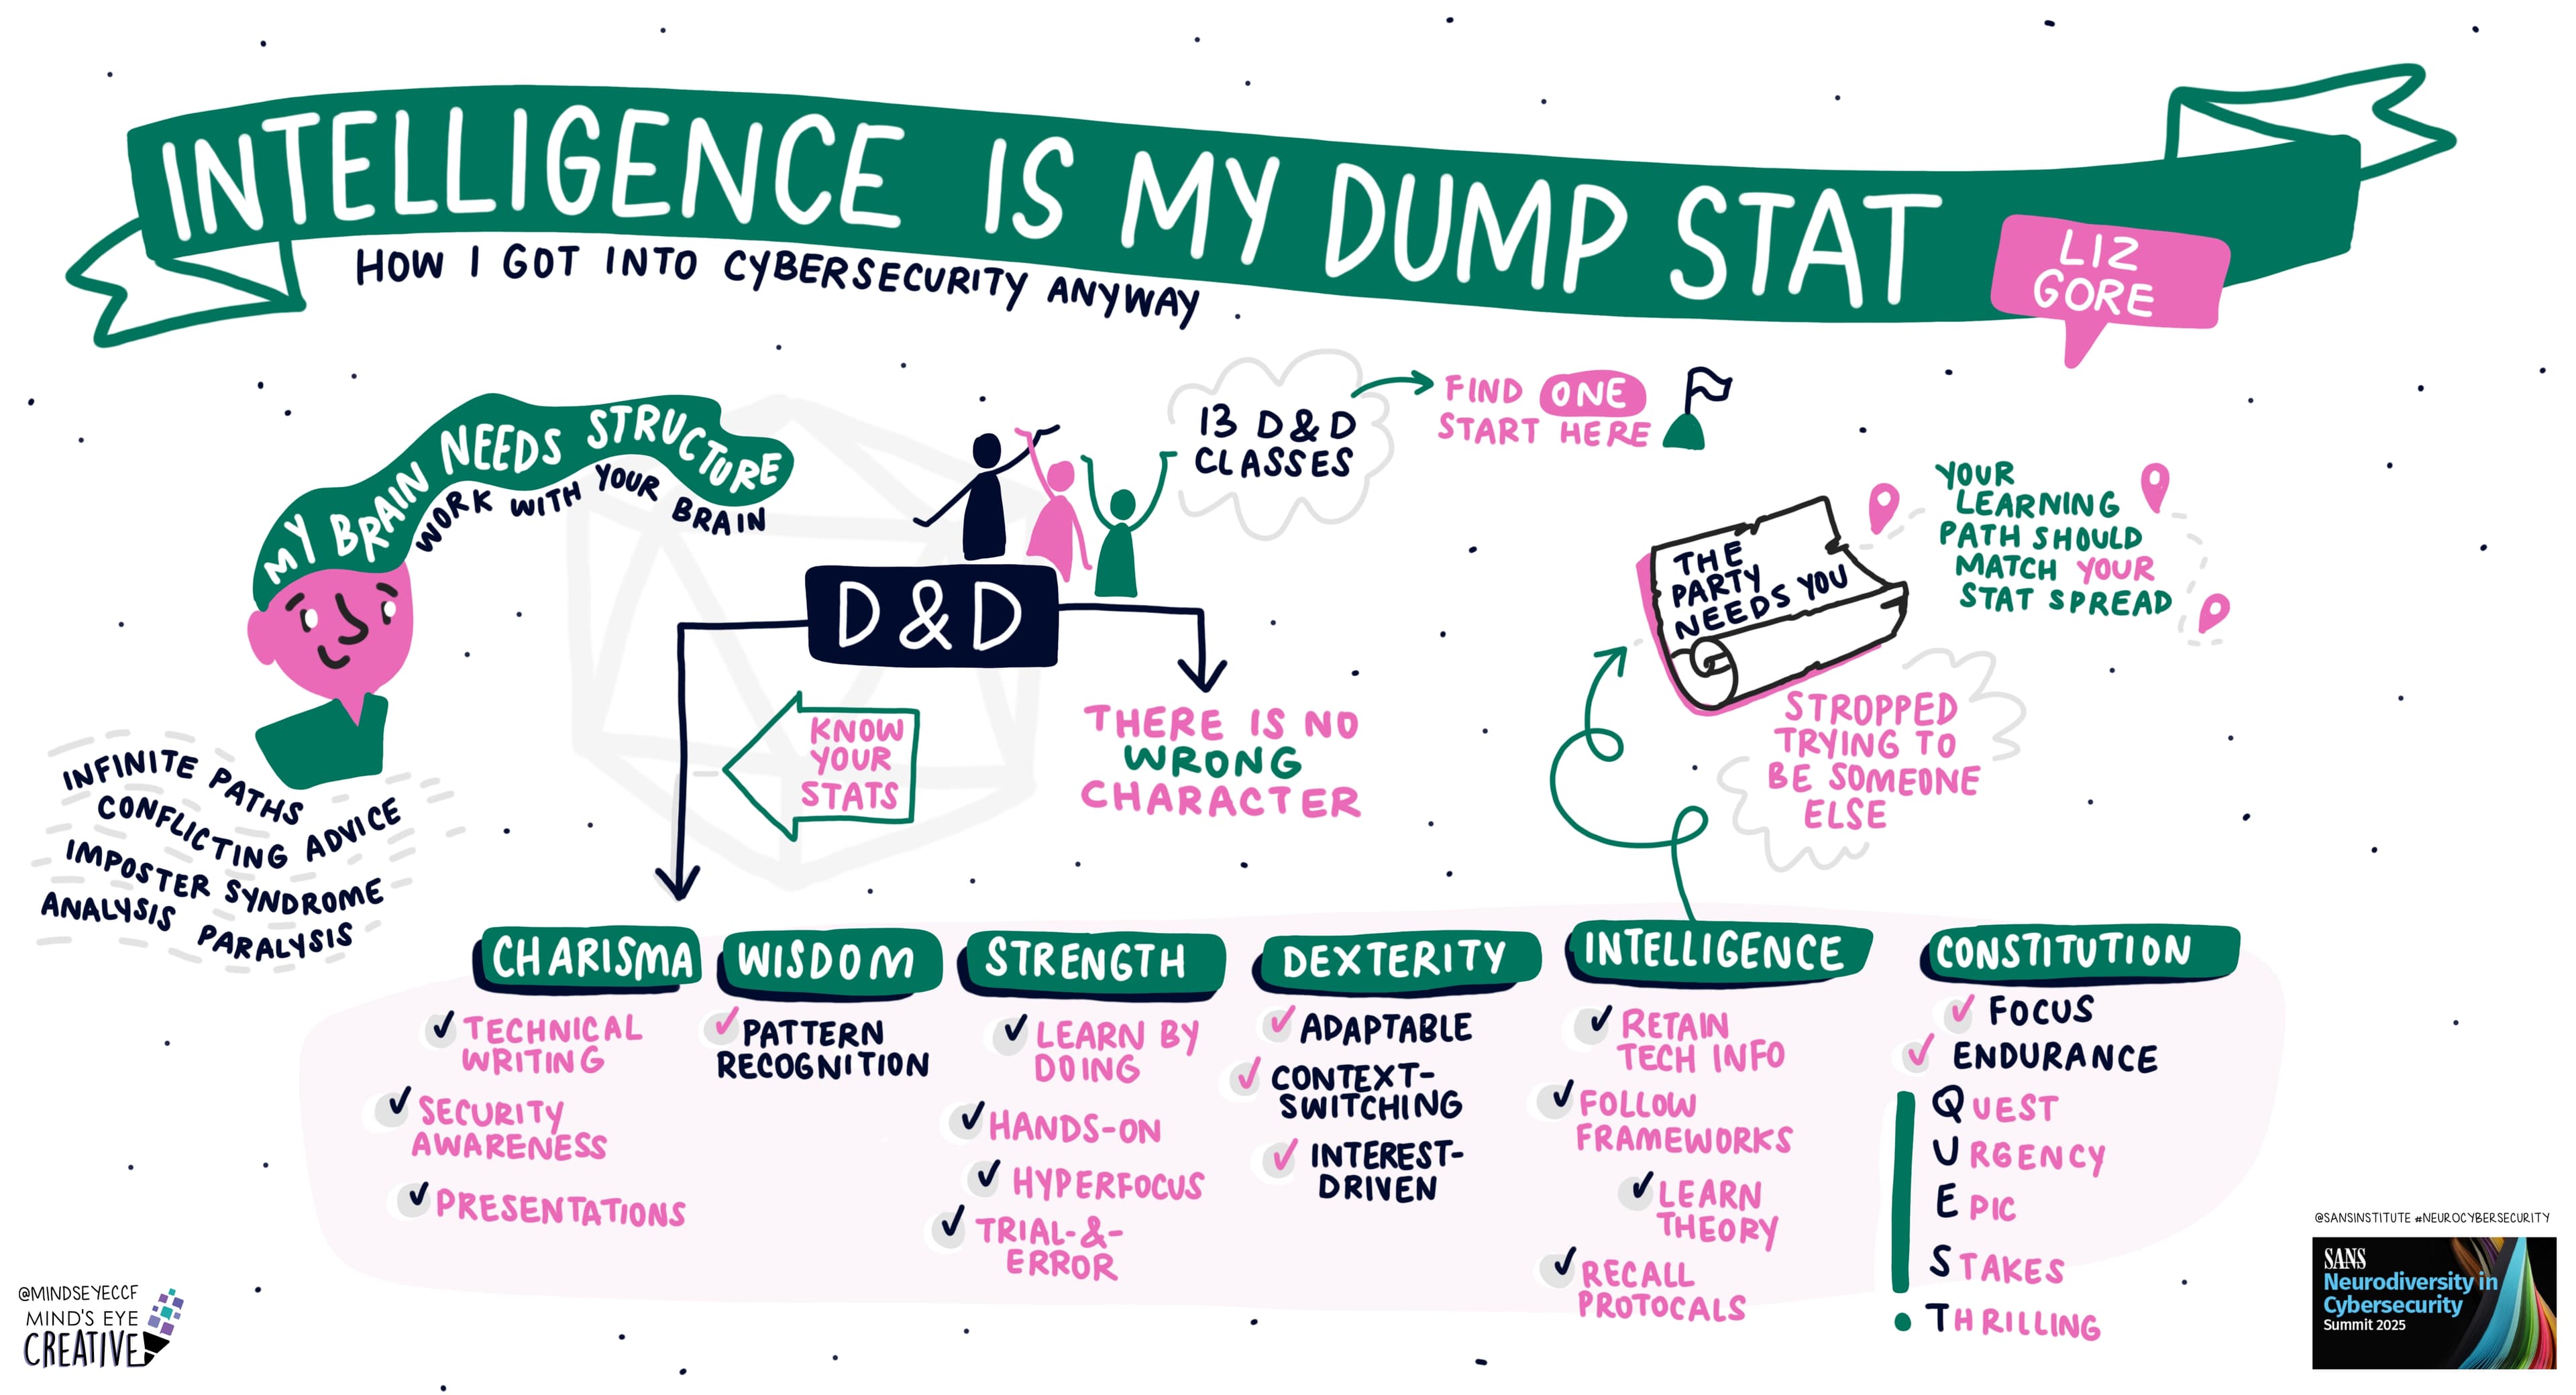 INTELLIGENCE IS MY DUMP STAT
HOW I GOT INTO CYBERSECURITY ANYWAY
LIZ
GORE
MY BRAIN NEEDS STRUCTURE
WORK WITH YOUR BRAIN
INFINITE PATHS
CONFLICTING ADVICE
IMPOSTER SYNDROME
ANALYSIS PARALYSIS
13 D&D
CLASSES
FIND ONE
START HERE
D&D
KNOW
YOUR
STATS
THERE IS NO
WRONG
CHARACTER
THE
PARTY
NEEDS YOU
YOUR
LEARNING
PATH SHOULD
MATCH YOUR
STAT SPREAD
STROPPED
TRYING TO
BE SOMEONE
ELSE
CHARISMA
TECHNICAL
WRITING
SECURITY
AWARENESS
PRESENTATIONS
WISDOM
PATTERN
RECOGNITION
STRENGTH
LEARN BY
DOING
HANDS-ON
HYPERFOCUS
TRIAL-&-
ERROR
DEXTERITY
ADAPTABLE
CONTEXT-
SWITCHING
INTEREST-
DRIVEN
INTELLIGENCE
RETAIN
TECH INFO
FOLLOW
FRAMEWORKS
LEARN
THEORY
RECALL
PROTOCALS
CONSTITUTION
FOCUS
ENDURANCE
QUEST
URGENCY
EPIC
STAKES
THRILLING
@MINDSEYECCF
MIND'S EYE
CREATIVE
@SANSINSTITUTE #NEUROCYBERSECURITY
SANS
Neurodiversity in
Cybersecurity
Summit 2025